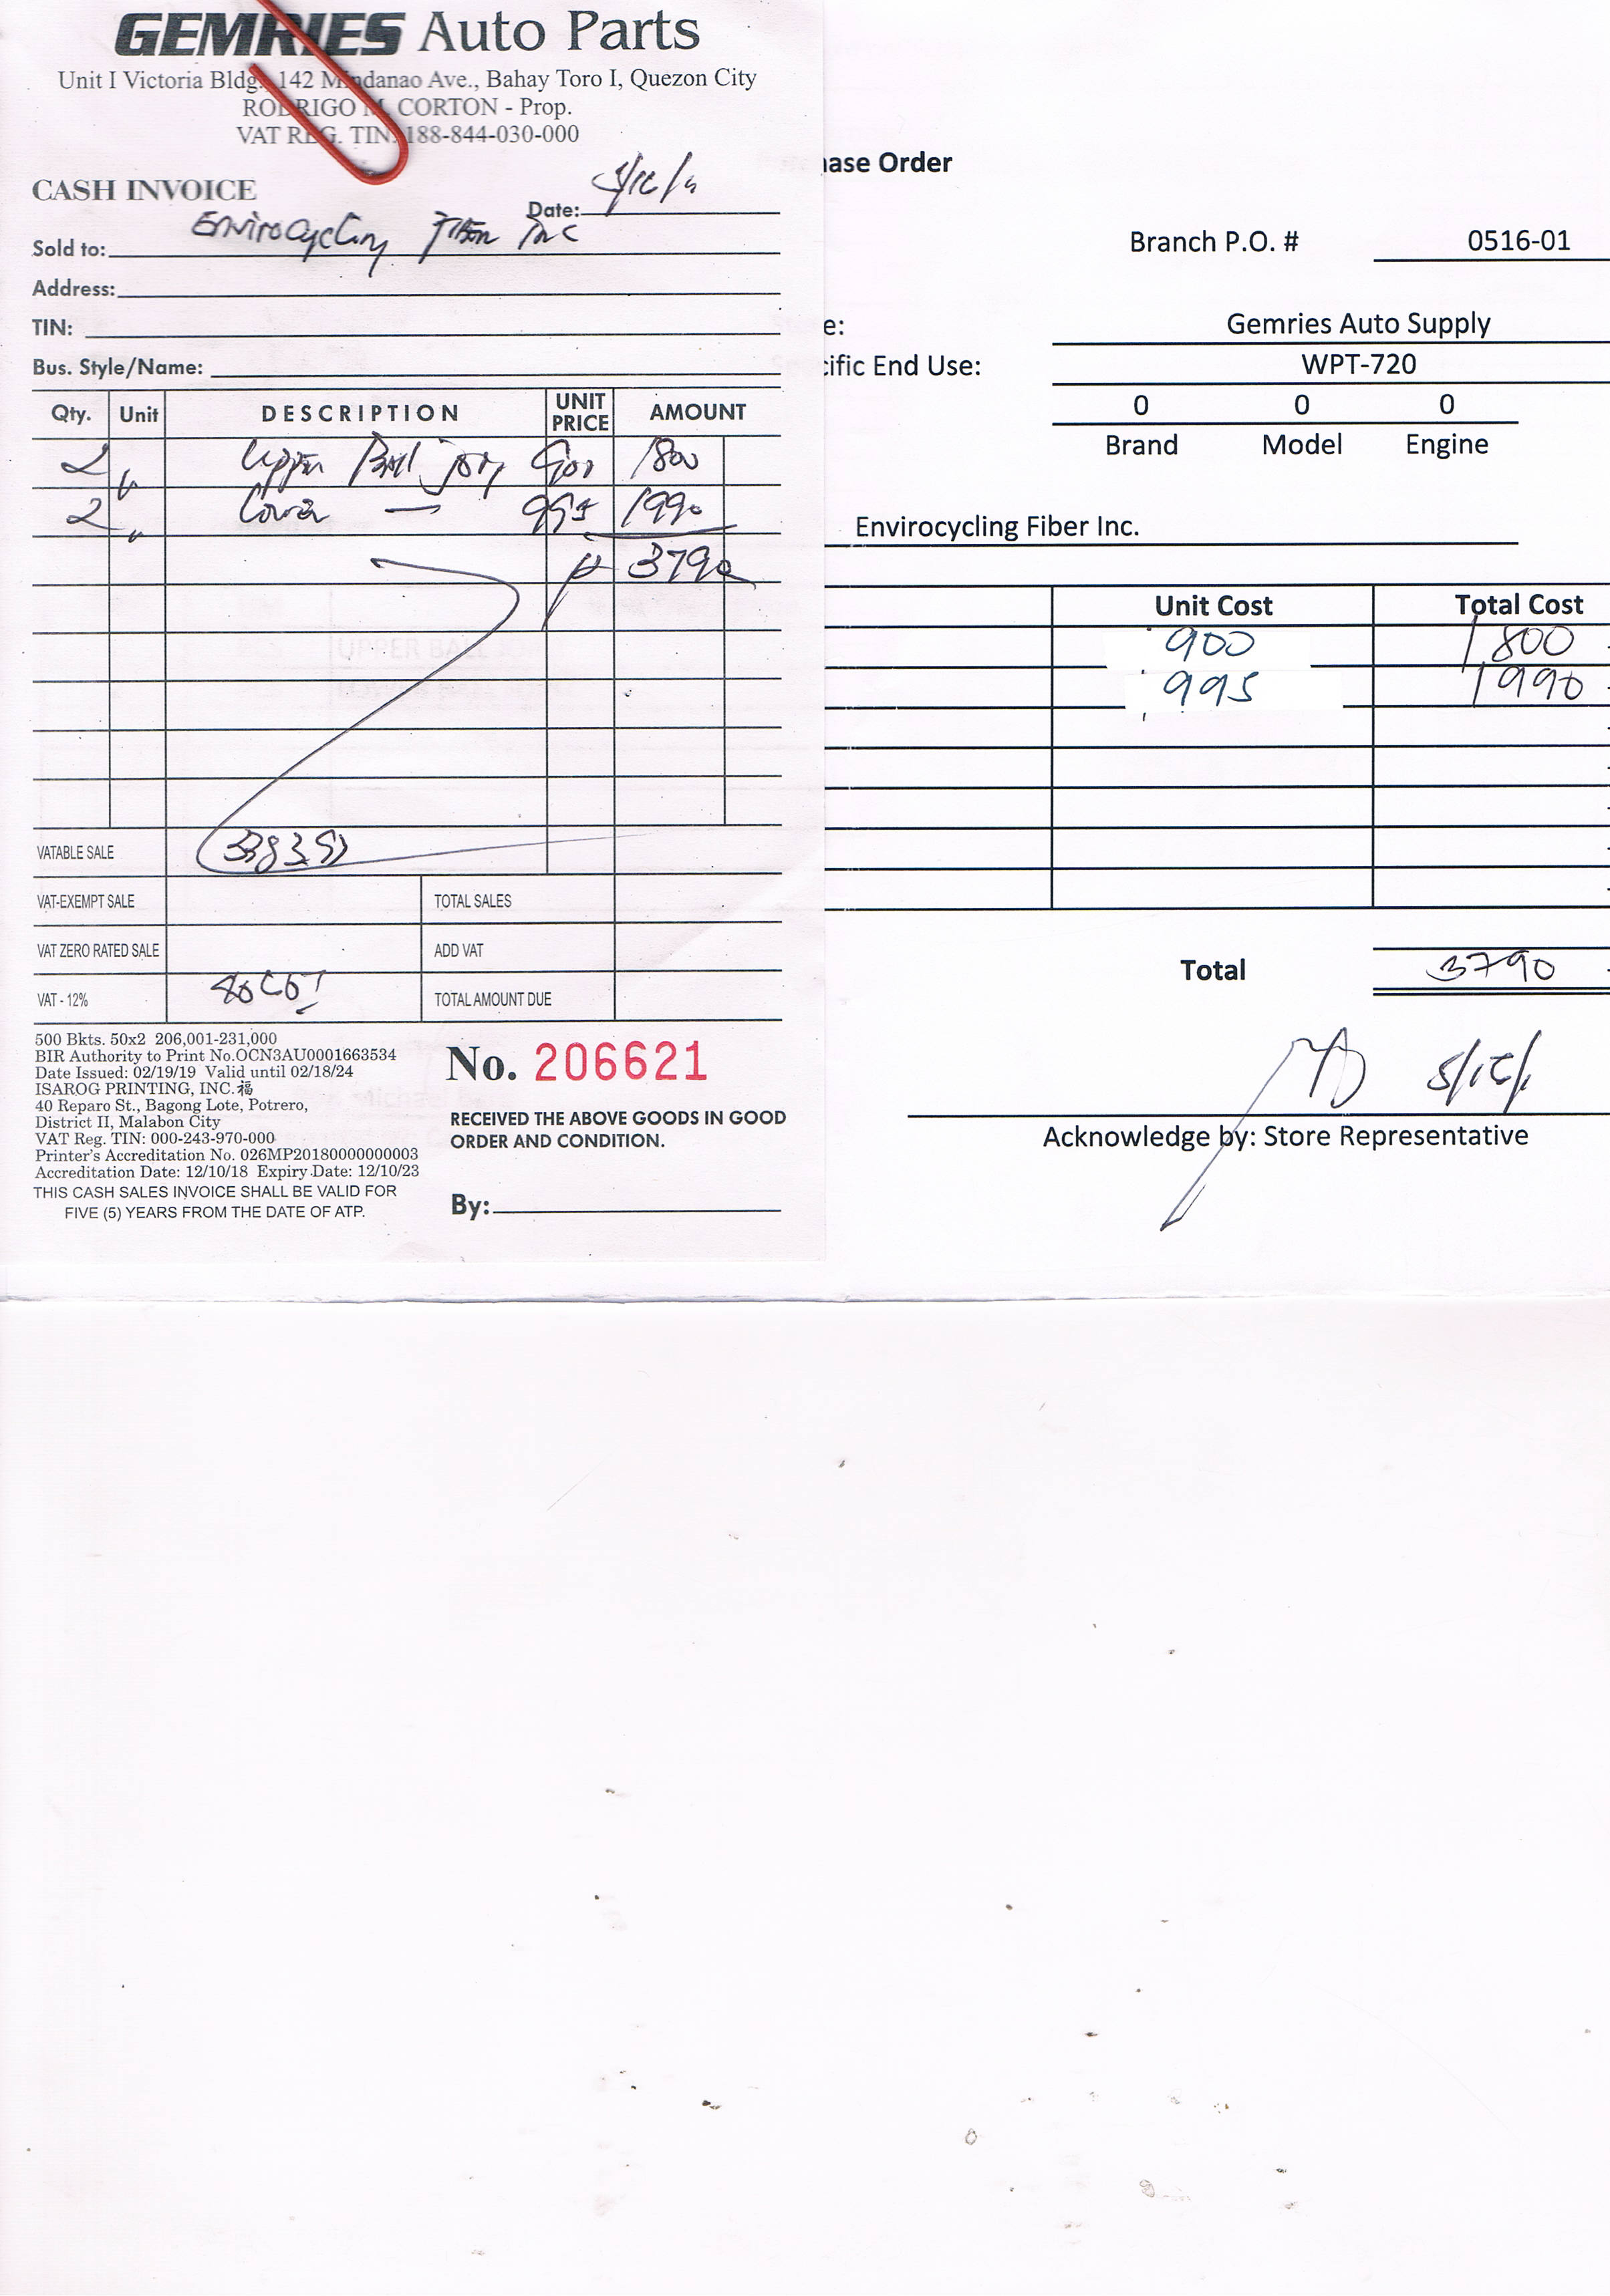 GEMRIES Auto Parts
Unit I Victoria Bldg., 142 Mindanao Ave., Bahay Toro I, Quezon City
RODRIGO M. CORTON - Prop.
VAT REG. TIN: 188-844-030-000
CASH INVOICE
Date:
Sold to: Envirocycling Fiber Inc
Address:
TIN:
Bus. Style/Name:
Qty. Unit DESCRIPTION UNIT PRICE AMOUNT
2 Upper Ball 900 1800
2 Lower — 995 1990
₱ 3790
VATABLE SALE
VAT-EXEMPT SALE TOTAL SALES
VAT ZERO RATED SALE ADD VAT
VAT - 12% TOTAL AMOUNT DUE
500 Bkts. 50x2 206,001-231,000
BIR Authority to Print No.OCN3AU0001663534
Date Issued: 02/19/19 Valid until 02/18/24
ISAROG PRINTING, INC.福
40 Reparo St., Bagong Lote, Potrero,
District II, Malabon City
VAT Reg. TIN: 000-243-970-000
Printer's Accreditation No. 026MP20180000000003
Accreditation Date: 12/10/18 Expiry Date: 12/10/23
THIS CASH SALES INVOICE SHALL BE VALID FOR
FIVE (5) YEARS FROM THE DATE OF ATP.
No. 206621
RECEIVED THE ABOVE GOODS IN GOOD
ORDER AND CONDITION.
By:
ase Order
Branch P.O. # 0516-01
e: Gemries Auto Supply
ific End Use: WPT-720
0 0 0
Brand Model Engine
Envirocycling Fiber Inc.
Unit Cost Total Cost
900 1,800
995 1,990
Total 3790
Acknowledge by: Store Representative